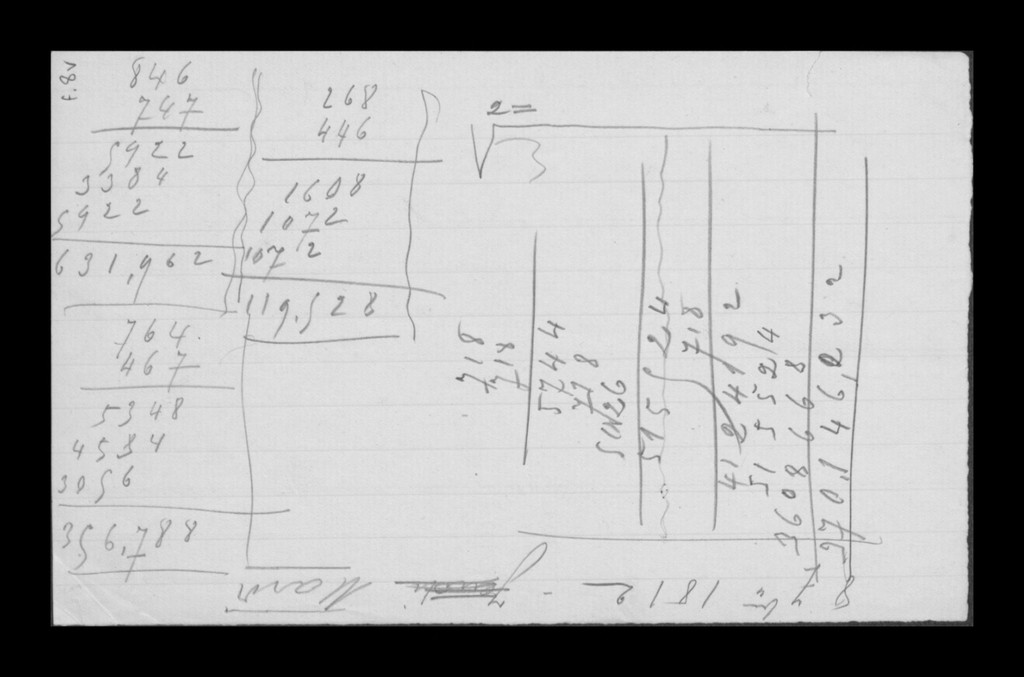 f.8v
846
747
5922
3384
5922
631,962
764
467
5348
4584
3056
356,788
268
446
1608
1072
1072
119.528
2=
√
718
718
5744
778
5026
515524
718
4124192
515524
3608668
370,146,232
1812